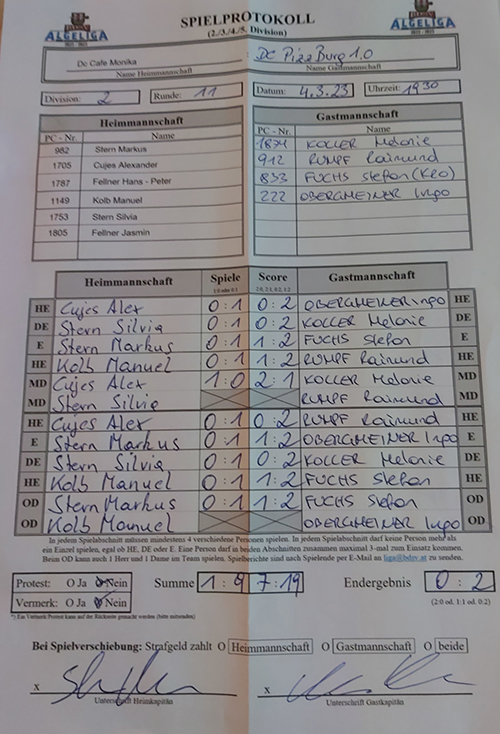 ALGELIGA
SPIELPROTOKOLL
ALGELIGA
(2./3./4./5. Division)
Dc Cafe Monika : DC PizzBurg 1.0
Name Heimmannschaft Name Gastmannschaft
Division: 2 Runde: 11 Datum: 4.3.23 Uhrzeit: 1930
Heimmannschaft Gastmannschaft
PC - Nr. Name PC - Nr. Name
982 Stern Markus 1871 KOLLER Melanie
1705 Cujes Alexander 912 RUMPF Raimund
1787 Fellner Hans - Peter 833 FUCHS Stefan (KRO)
1149 Kolb Manuel 222 OBERGMEINER Ingo
1753 Stern Silvia
1805 Fellner Jasmin
Heimmannschaft Spiele Score Gastmannschaft
1:0 oder 0:1 2:0, 2:1, 0:2, 1:2
HE Cujes Alex 0:1 0:2 OBERGMEINER Ingo HE
DE Stern Silvia 0:1 0:2 KOLLER Melanie DE
E Stern Markus 0:1 1:2 FUCHS Stefan E
HE Kolb Manuel 0:1 1:2 RUMPF Raimund HE
MD Cujes Alex 1:0 2:1 KOLLER Melanie MD
MD Stern Silvia RUMPF Raimund MD
HE Cujes Alex 0:1 0:2 RUMPF Raimund HE
E Stern Markus 0:1 1:2 OBERGMEINER Ingo E
DE Stern Silvia 0:1 0:2 KOLLER Melanie DE
HE Kolb Manuel 0:1 1:2 FUCHS Stefan HE
OD Stern Markus 0:1 1:2 FUCHS Stefan OD
OD Kolb Manuel OBERGMEINER Ingo OD
In jedem Spielabschnitt müssen mindestens 4 verschiedene Personen spielen. In jedem Spielabschnitt darf keine Person mehr als
ein Einzel spielen, egal ob HE, DE oder E. Eine Person darf in beiden Abschnitten zusammen maximal 3-mal zum Einsatz kommen.
Beim OD kann auch 1 Herr und 1 Dame im Team spielen. Spielberichte sind nach Spielende per E-Mail an liga@bdsv.at zu senden.
Protest: O Ja O Nein Summe 1:9 7:19 Endergebnis 0:2
Vermerk: O Ja O Nein (2:0 od. 1:1 od. 0:2)
Bei Spielverschiebung: Strafgeld zahlt O Heimmannschaft O Gastmannschaft O beide
x x
Unterschrift Heimkapitän Unterschrift Gastkapitän